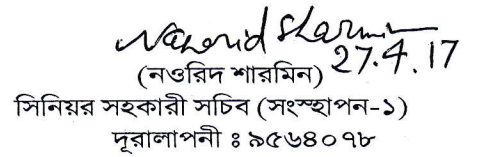 Naorid Sharmin
27.4.17
(নওরিদ শারমিন)
সিনিয়র সহকারী সচিব (সংস্হাপন-১)
দূরালাপনী ঃ ৯৫৬৪০৭৮